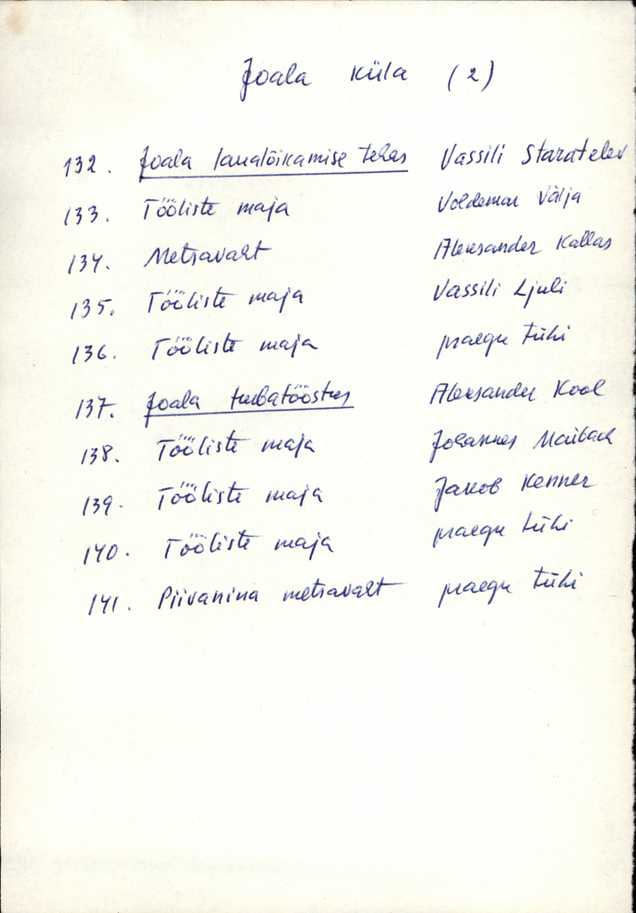 Joala küla (2)
132. Joala laualõikamise tehas Vassili Staratelev
133. Tööliste maja Voldemar Välja
134. Metsavaht Aleksander Kallas
135. Tööliste maja Vassili Ljuli
136. Tööliste maja praegu tühi
137. Joala turbatööstus Aleksander Kool
138. Tööliste maja Johannes Maibach
139. Tööliste maja Jakob Kenner
140. Tööliste maja praegu tühi
141. Piivanina metsavaht praegu tühi